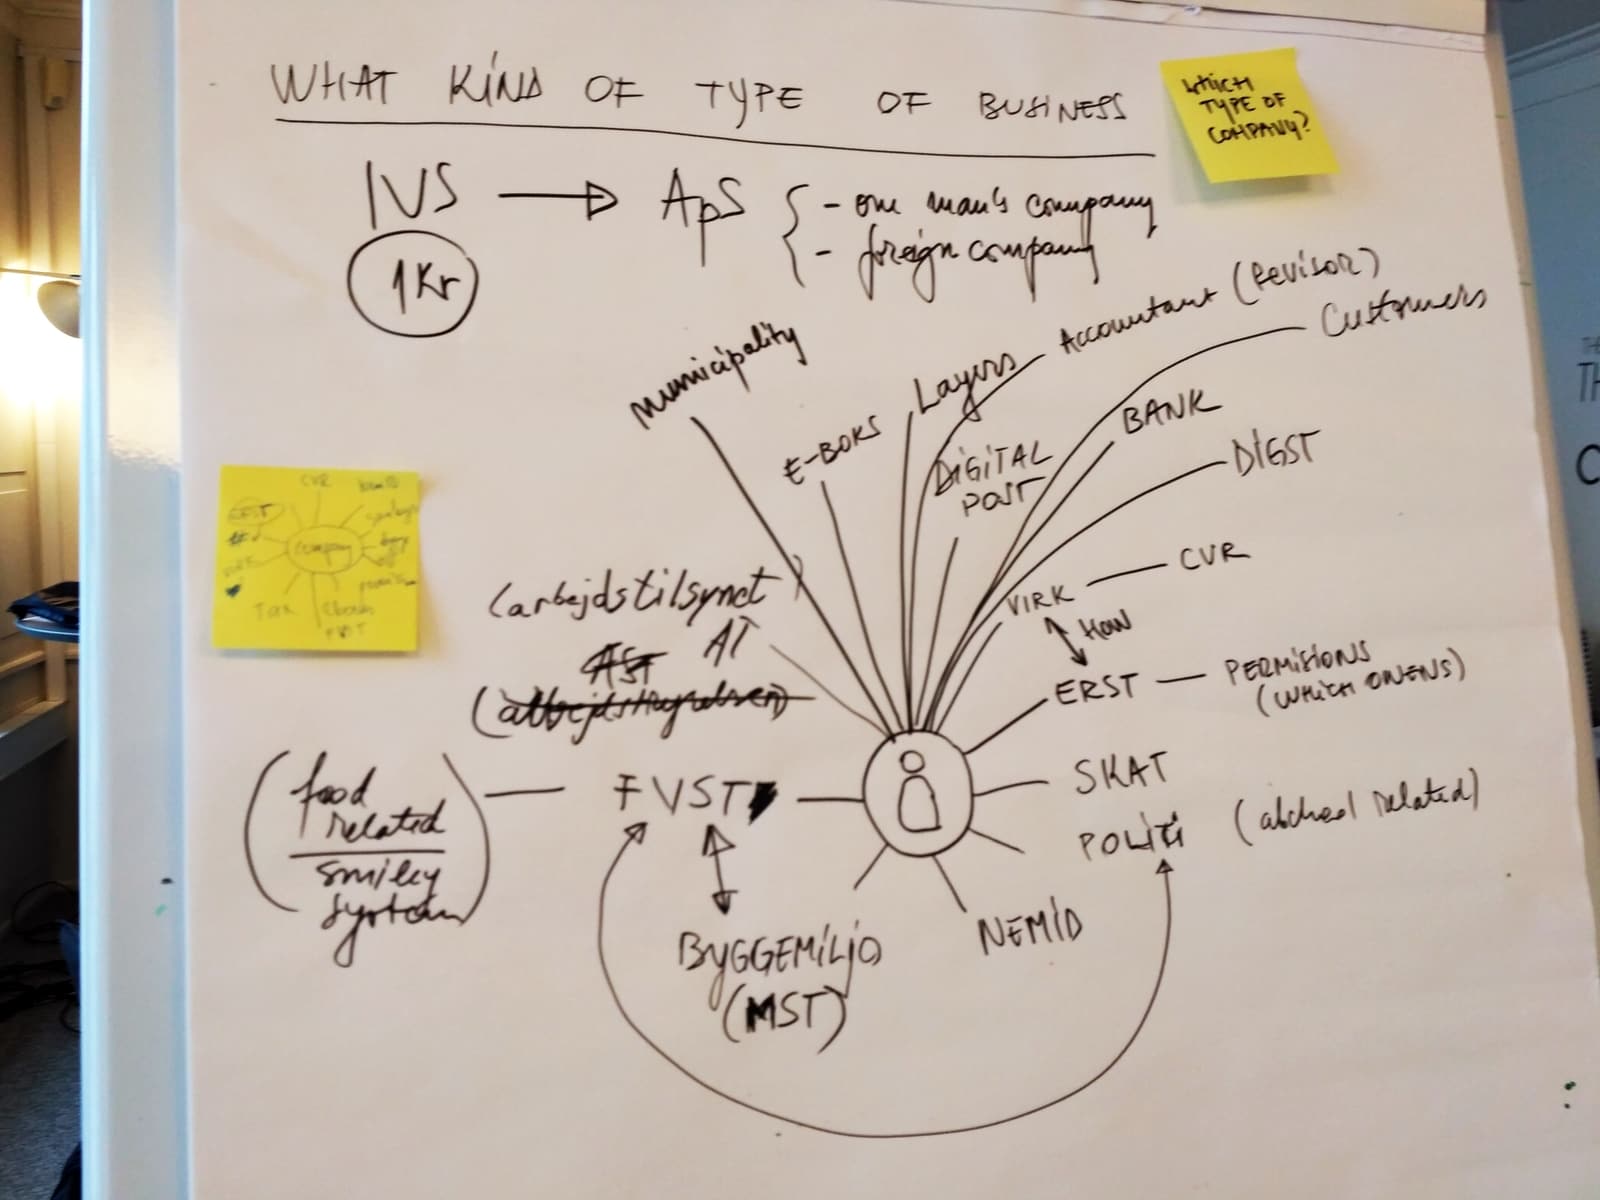 WHAT KIND OF TYPE OF BUSINESS
WHICH
TYPE OF
COMPANY?
IVS
ApS
- one man's company
- foreign company
1Kr
Municipality
E-BOKS
Layers
Accountant (Revisor)
Customers
DIGITAL
POST
BANK
DIGST
VIRK
CVR
HOW
ERST
PERMISIONS
(WHICH ONENS)
SKAT
POLITI
(alchool related)
NEMID
BYGGEMILJO
(MST)
FVST
(food
related
smiley
system)
(arbejdstilsynet)
AT
CVR
ERST
company
Tax